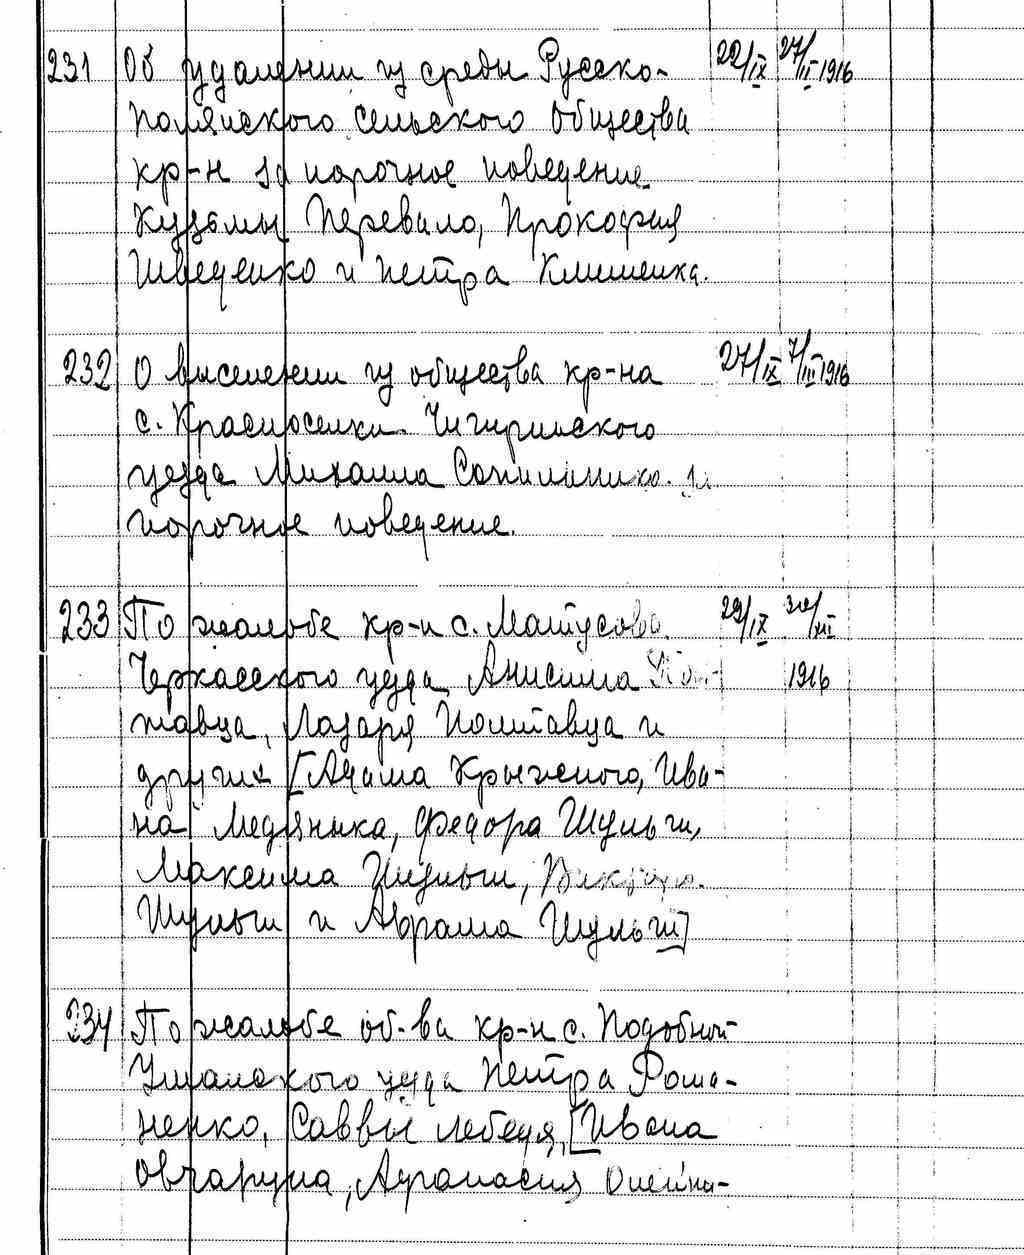 231 Об удалении из среды Русско- 22/IX 27/II 1916
Полянского сельского общества
кр-н за порочное поведение
Кузьмы Перевало, Прокофия
Шведенко и Петра Клименка.
232 О виселении из общества кр-на 27/IX 7/III 1916
с. Красноселки Чигиринского
уезда Михаила Сопильника за
порочное поведение.
233 По жалобе кр-н с. Матусова 29/IX
Черкасского уезда Анисима 1916
тавца, Лазаря Полтавца и
других [Адама Крыжного, Ива-
на Медяника, Федора Шульги,
Максима Шульги,
Шульги и Абрама Шульги]
234 По жалобе об-ва кр-н с. Подобной
Уманского уезда Петра Рома-
ненко, Саввы Лебедя, [Ивана
Овчарука, Афанасия Олейни-